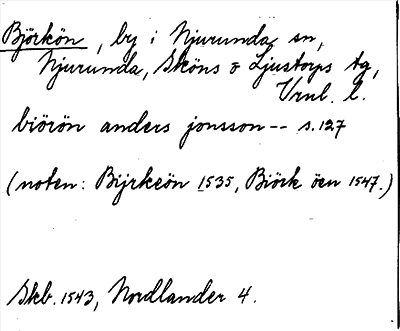 Björkön, by i Njurunda sn,
Njurunda, Sköns & Ljustorps tg,
Vrnl. l.
biörön anders jonsson -- s. 127
(noten: Bijrkeön 1535, Biörk öen 1547.)
Skb. 1543, Nordlander 4.